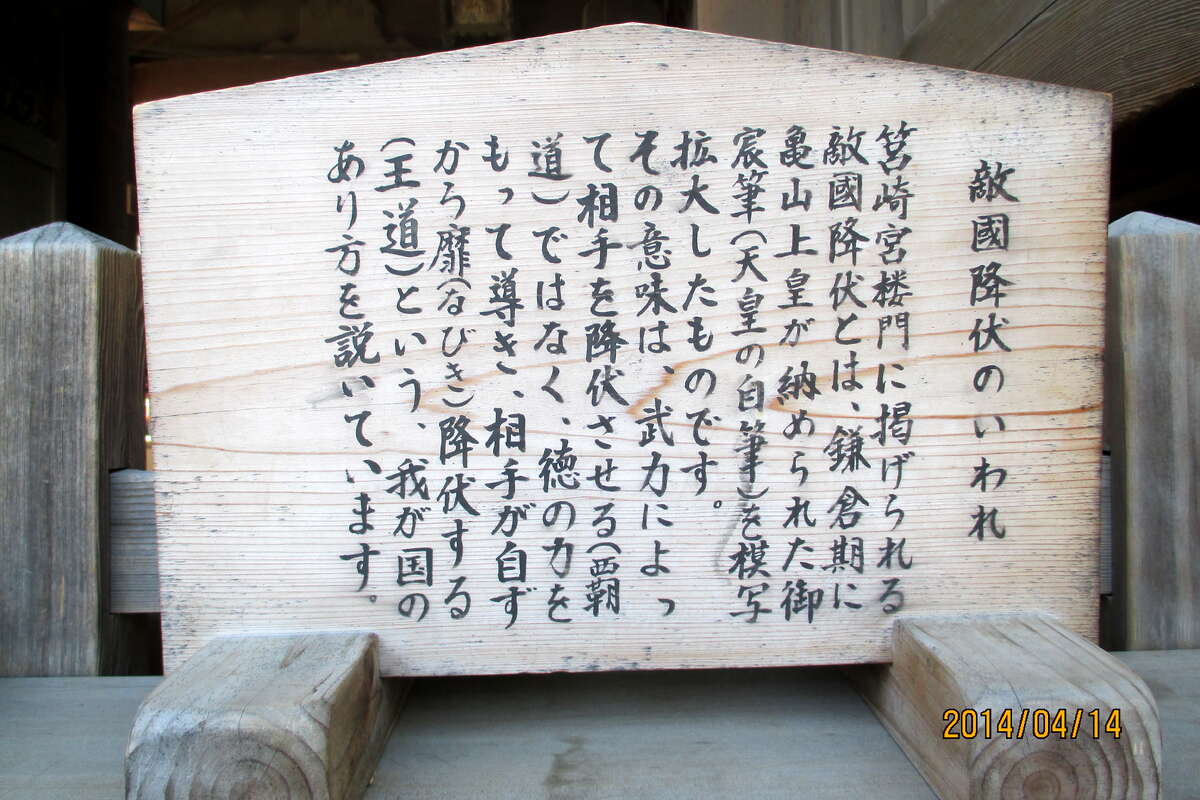 敵國降伏のいわれ
筥崎宮楼門に掲げられる
敵國降伏とは、鎌倉期に
亀山上皇が納められた御
宸筆(天皇の自筆)を模写
拡大したものです。
その意味は、武力によっ
て相手を降伏させる(覇
道)ではなく、徳の力を
もって導き、相手が自ず
から靡(なびき)降伏する
(王道)という、我が国の
あり方を説いています。
2014/04/14